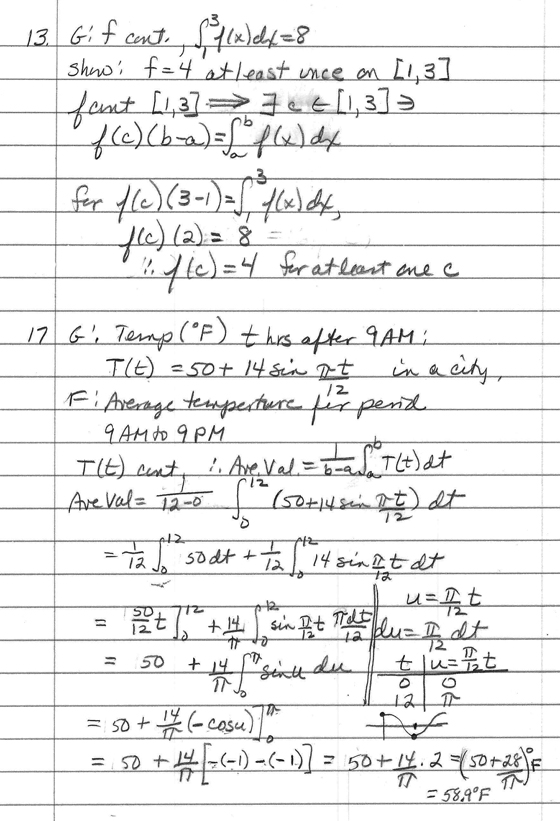 13. G: f cont., ∫₁³ f(x)dx = 8
Show: f = 4 at least once on [1,3]
f cont [1,3] ⟹ ∃ c ∈ [1,3] ∋
f(c)(b-a) = ∫ₐᵇ f(x) dx
for f(c)(3-1) = ∫₁³ f(x) dx,
f(c)(2) = 8
∴ f(c) = 4 for at least one c
17 G: Temp (°F) t hrs after 9 AM:
T(t) = 50 + 14 sin πt/12 in a city,
F: Average temperture for period
9 AM to 9 PM
T(t) cont, ∴ Ave. Val. = 1/(b-a) ∫ₐᵇ T(t) dt
Ave Val = 1/(12-0) ∫₀¹² (50 + 14 sin πt/12) dt
= 1/12 ∫₀¹² 50 dt + 1/12 ∫₀¹² 14 sin π/12 t dt
u = π/12 t
= 50/12 t]₀¹² + 14/π ∫₀¹² sin π/12 t πdt/12 du = π/12 dt
= 50 + 14/π ∫₀^π sin u du t | u = π/12 t
0 | 0
12 | π
= 50 + 14/π (-cos u)]₀^π
= 50 + 14/π [-(-1) - (-1)] = 50 + 14/π · 2 = (50 + 28/π)°F
= 58.9°F